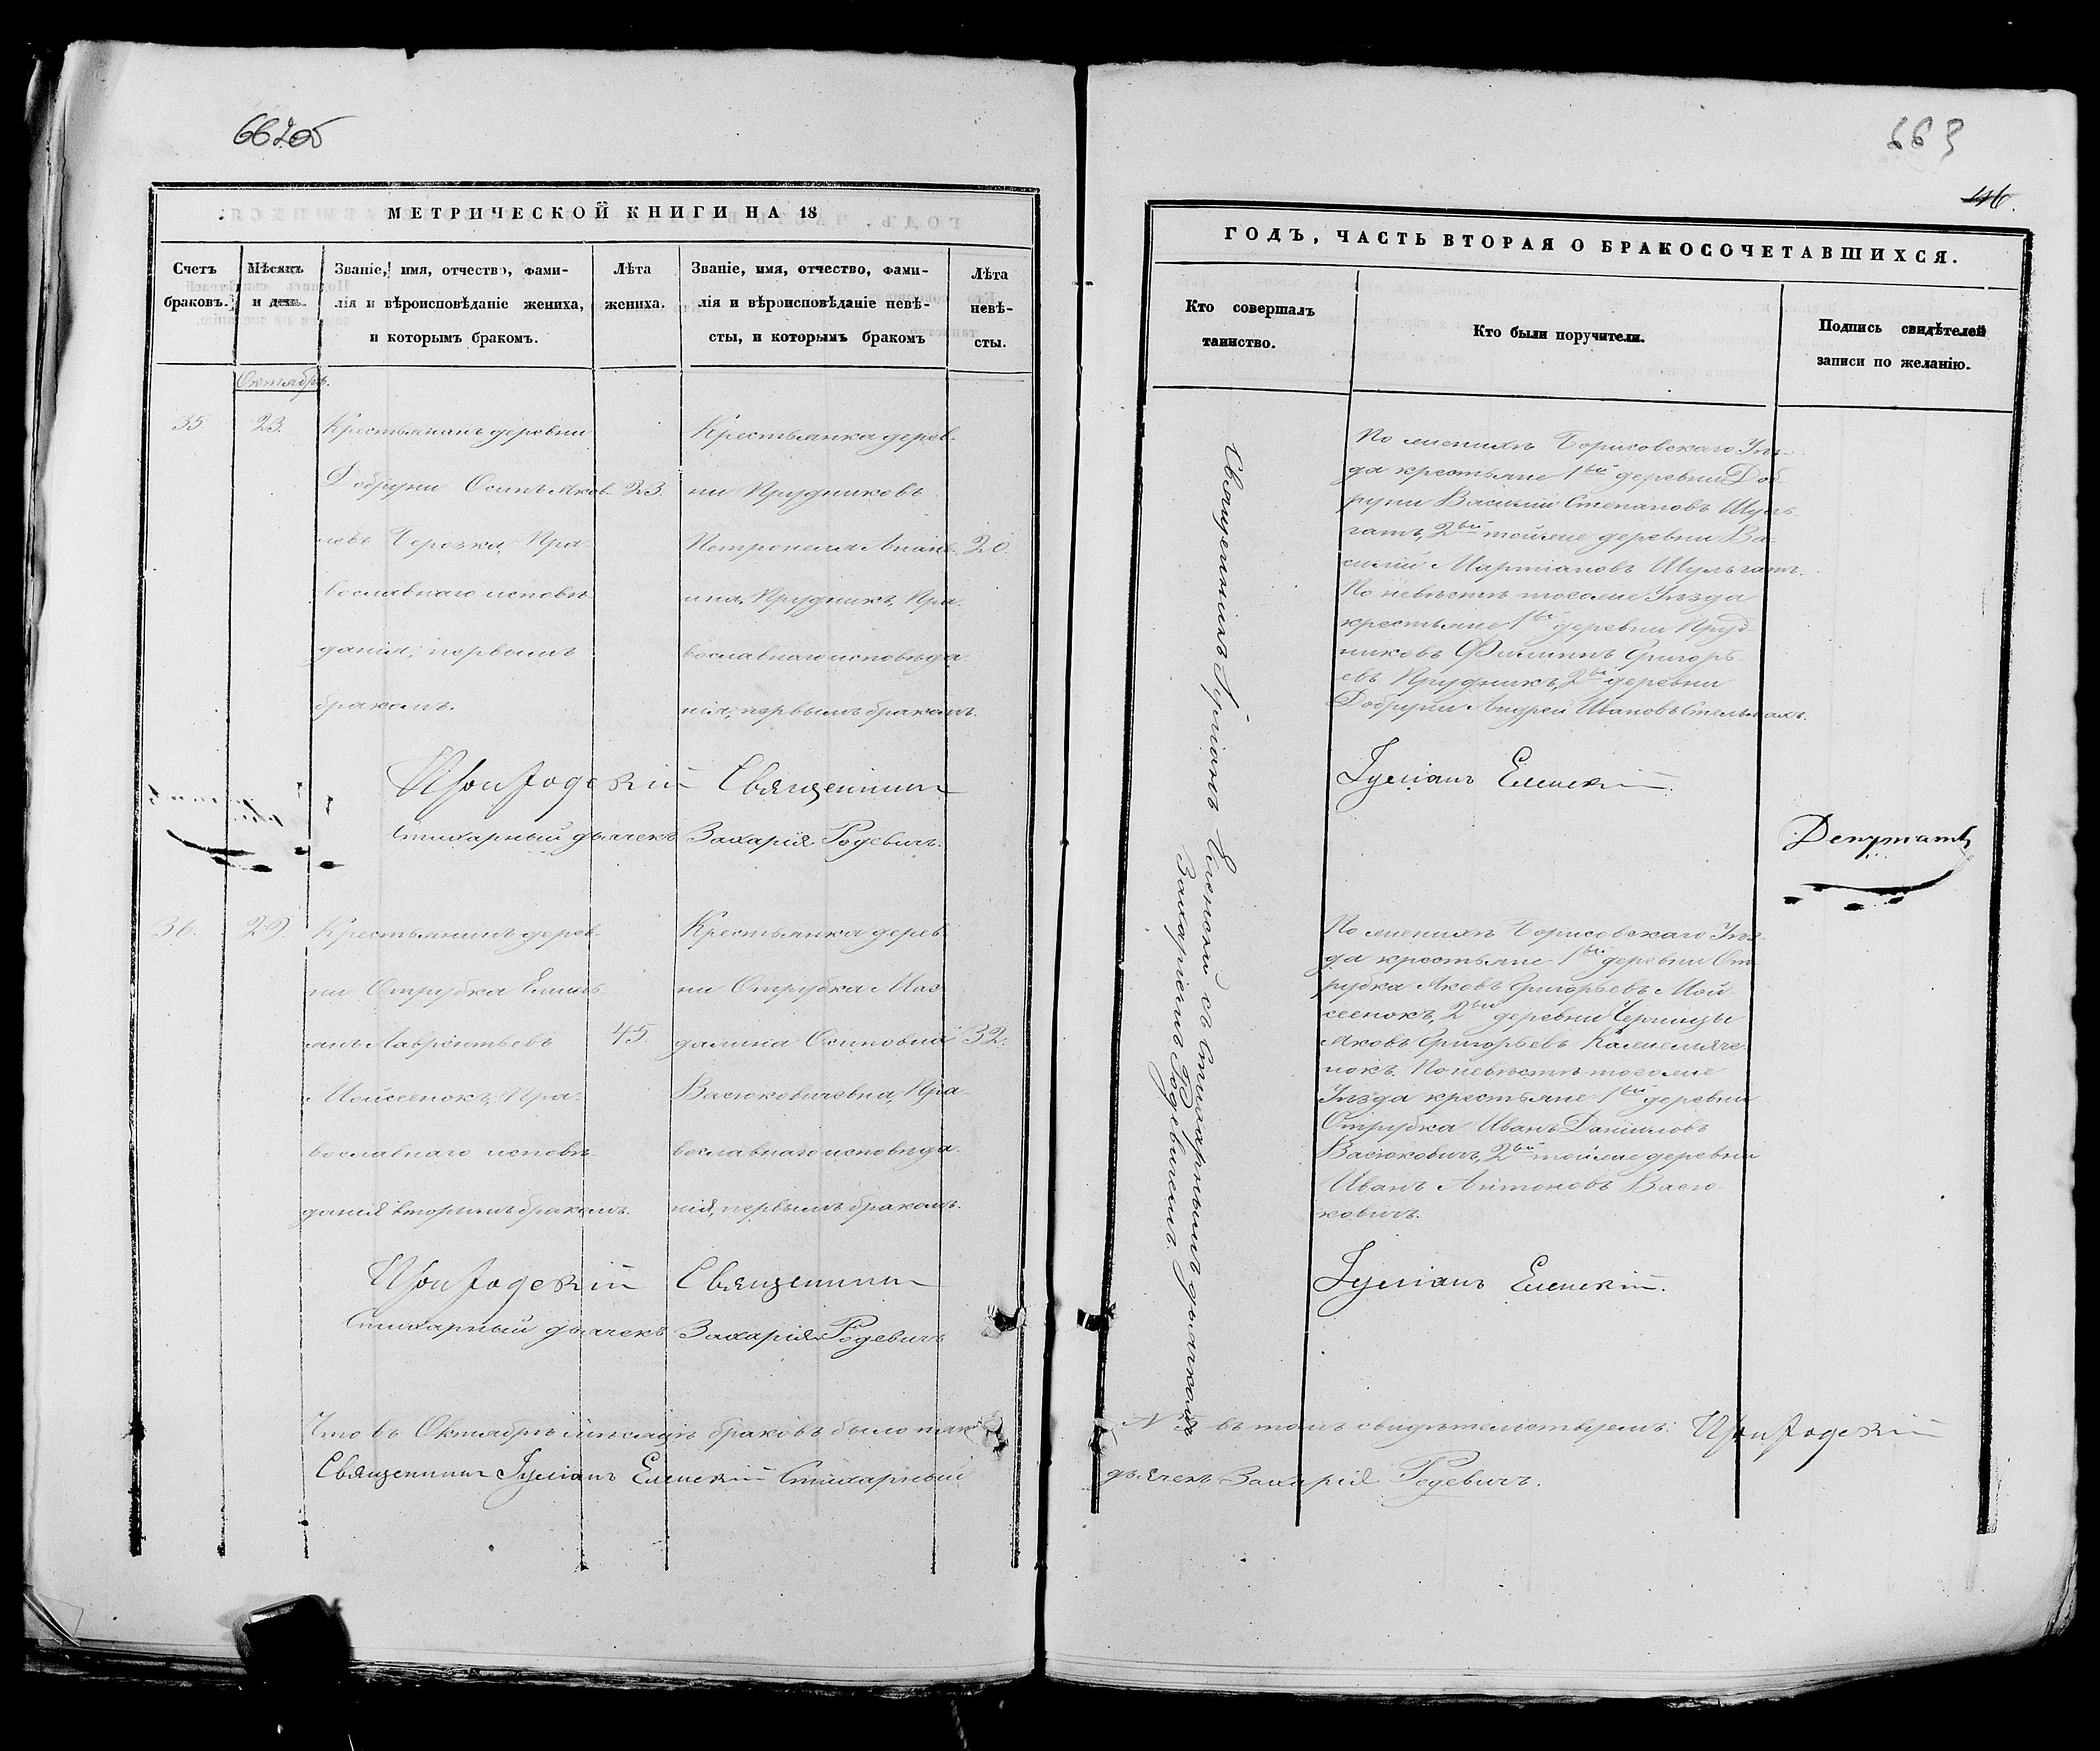 662об
МЕТРИЧЕСКОЙ КНИГИ НА 18
Счетъ браковъ.
Мѣсяцъ и день.
Званіе, имя, отчество, фами-
лія и вѣроисповѣданіе жениха,
и которымъ бракомъ.
Лѣта жениха.
Званіе, имя, отчество, фами-
лія и вѣроисповѣданіе невѣ-
сты, и которымъ бракомъ
Лѣта невѣ-
сты.
Октябрь.
35.
23.
Крестьянинъ деревни
Добруни Осипъ Яков-
левъ Березка, Пра-
вославнаго исповѣ-
данія, первымъ
бракомъ.
23.
Крестьянка дерев-
ни Прудниковъ
Петронеля Анань-
ина, Прудникъ, Пра-
вославнаго исповѣда-
нія, первымъ бракомъ.
20.
Священникъ
Стихарный дьячекъ Захарія Родевичъ.
36.
29.
Крестьянинъ дерев-
ни Отрубка Емиль-
янъ Лаврентьевъ
Мойсеенокъ, Пра-
вославнаго исповѣ-
данія вторымъ бракомъ.
45.
Крестьянка дерев-
ни Отрубка Маг-
далина Осиповна
Васюковичевна, Пра-
вославнаго исповѣда-
нія, первымъ бракомъ.
32.
Священникъ
Стихарный дьячекъ Захарія Родевичъ
Что въ Октябрѣ мѣсяцѣ браковъ было
Священникъ Іуліанъ Еленскій Стихарный
663
46.
ГОДЪ, ЧАСТЬ ВТОРАЯ О БРАКОСОЧЕТАВШИХСЯ.
Кто совершалъ
таинство.
Кто были поручители.
Подпись свидѣтелей
записи по желанію.
Священникъ Іуліанъ Еленскій съ Стихарнымъ дьячкомъ
Захаріемъ Родевичемъ.
По женихѣ Борисовскаго Уѣз-
да крестьяне 1вый деревни Доб-
руни Василій Степановъ Шуль-
гатъ, 2вый тойже деревни Ва-
силій Мартіановъ Шульгатъ.
По невѣстѣ тогоже Уѣзда
крестьяне 1вый деревни Пруд-
никовъ Филиппъ Григорь-
евъ Прудникъ, 2вый деревни
Добруни Андрей Ивановъ Стельмахъ.
Іуліанъ Еленскій.
Депутатъ
По женихѣ Борисовскаго Уѣз-
да крестьяне 1вый деревни От-
рубка Яковъ Григорьевъ Мой-
сеенокъ, 2вый деревни Черницы
Яковъ Григорьевъ
нокъ. По невѣстѣ тогоже
Уѣзда крестьяне 1вый деревни
Отрубка Иванъ Даниловъ
Васюковичъ, 2вый тойже деревни
Иванъ Антоновъ Васю-
ковичъ.
Іуліанъ Еленскій.
въ томъ свидѣтельствуемъ:
дьячекъ Захарія Родевичъ.